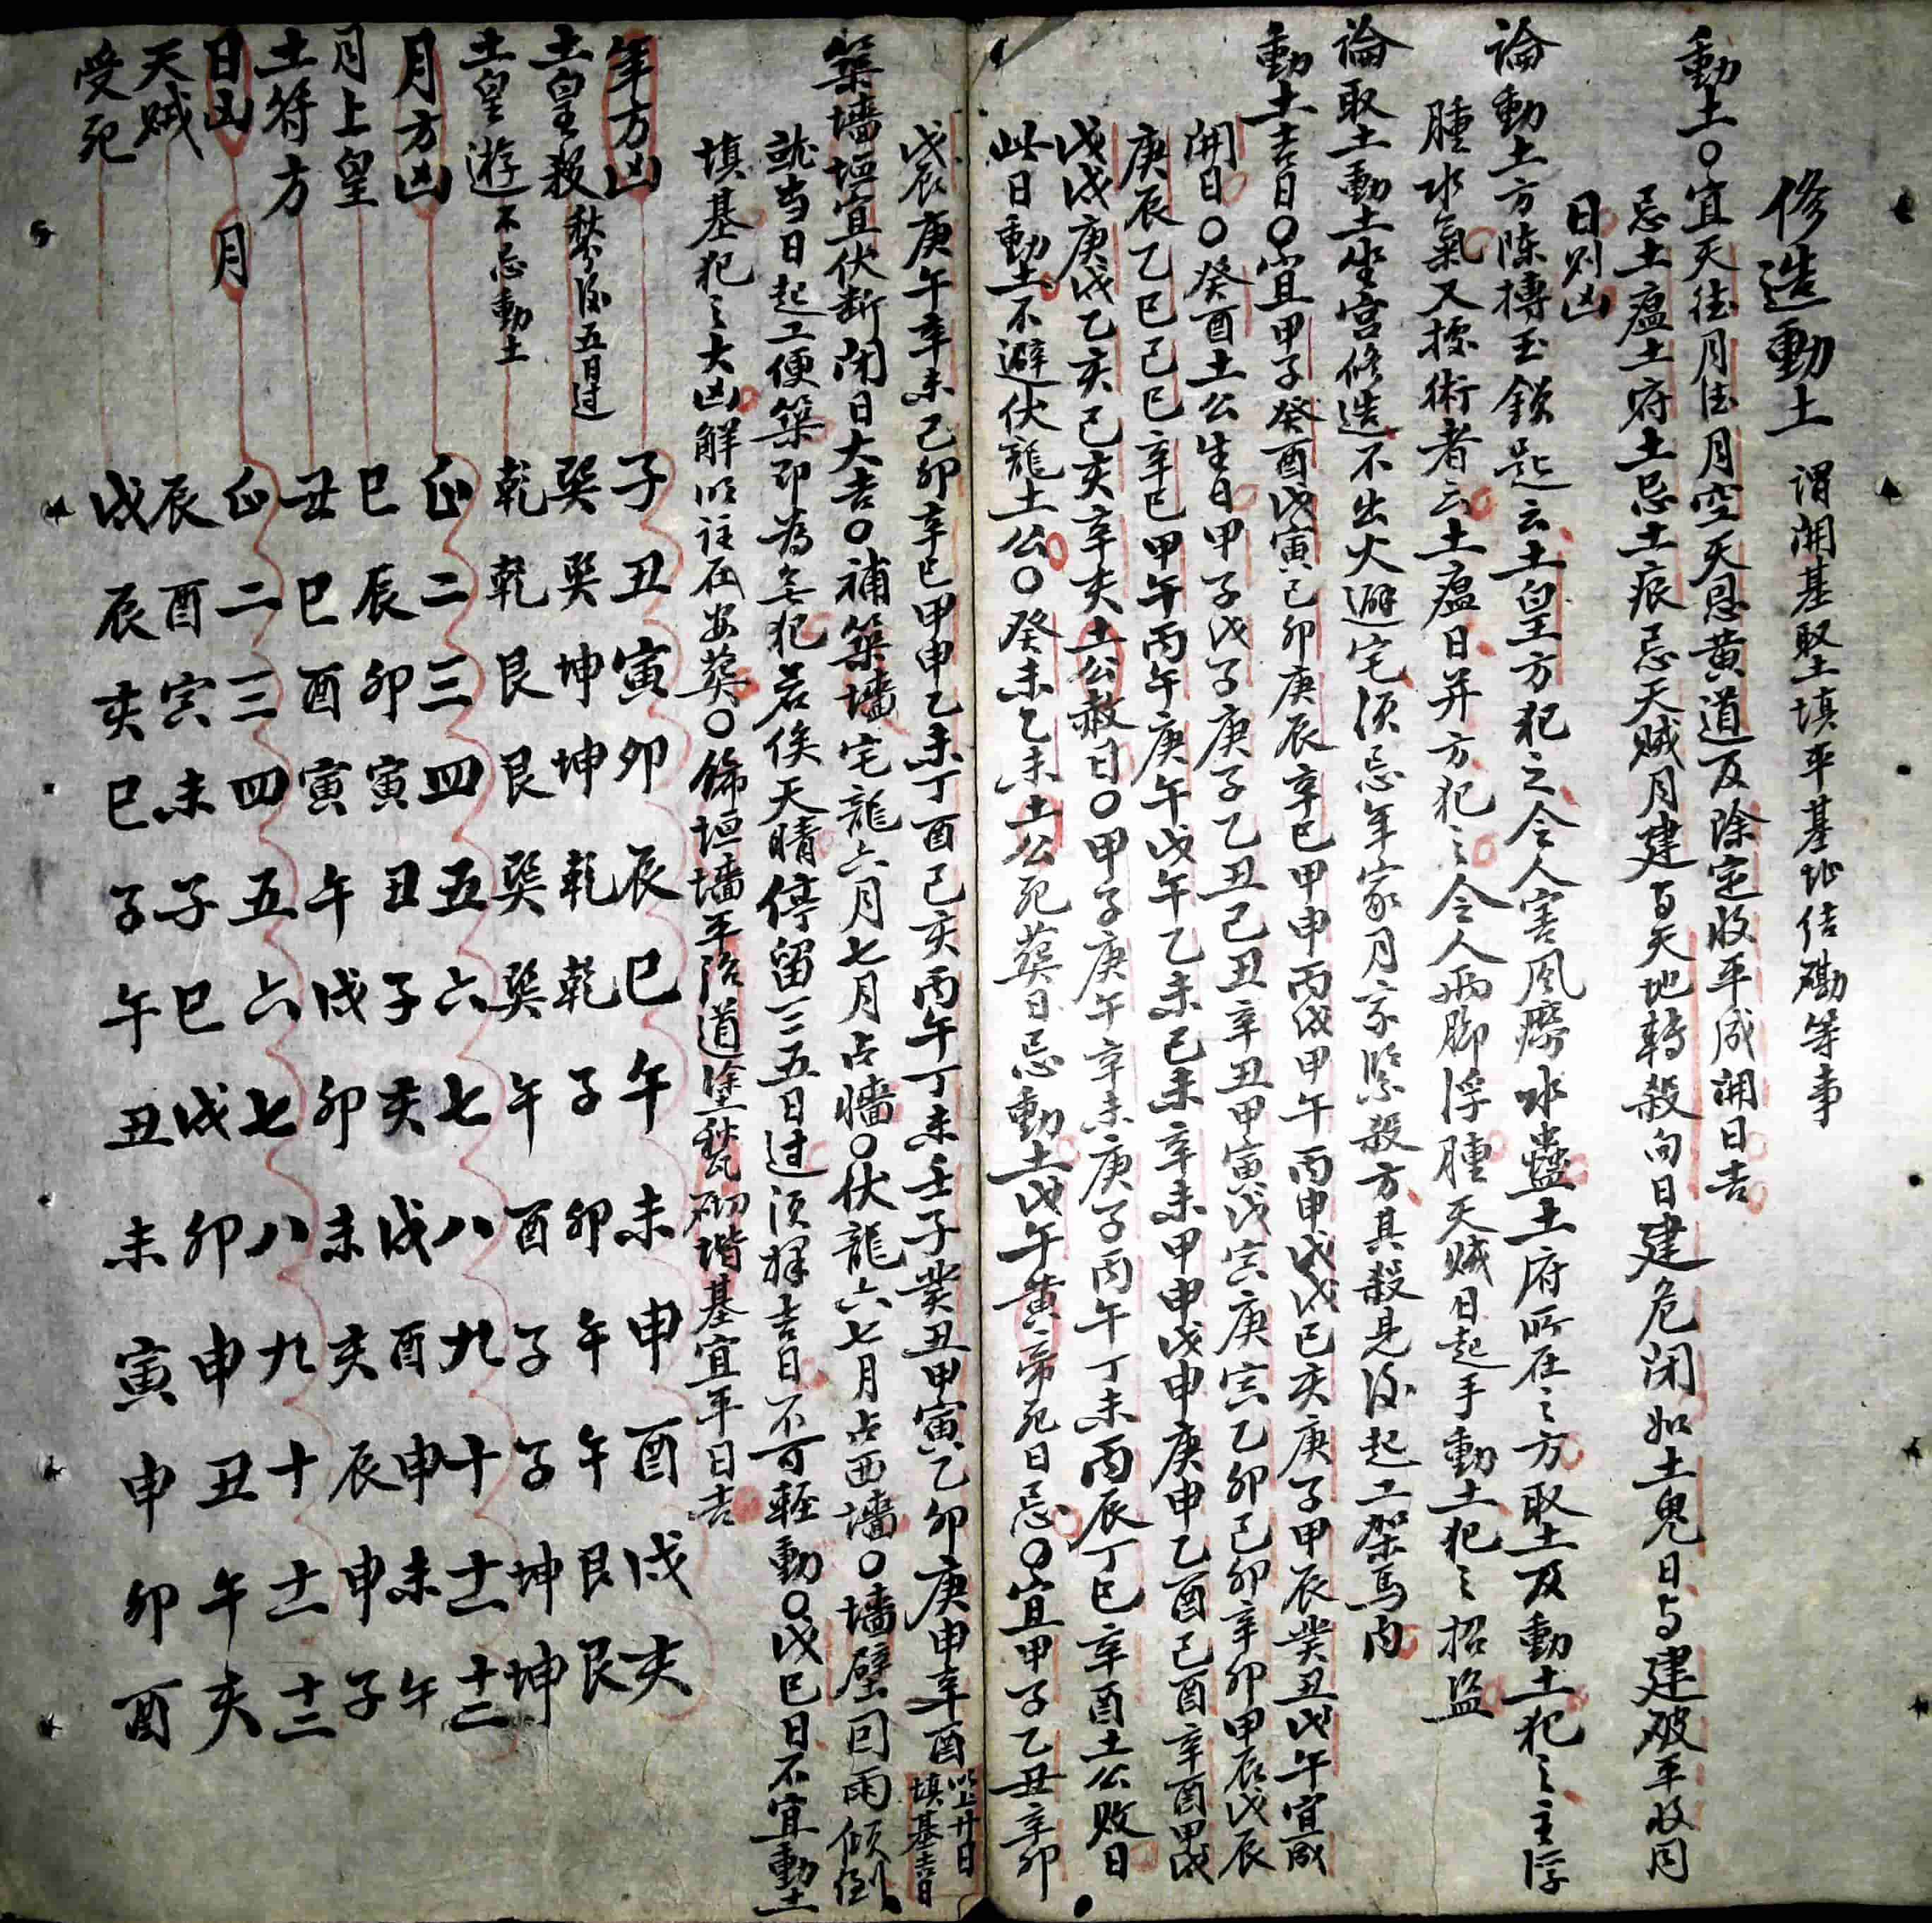 修造動土 謂開基堅土填平基址佶磡等事
動土○宜天德月德月空天恩黄道及除定收平成開日吉
忌土瘟土府土忌土痕忌天賊月建与天地轉殺向日建危闭如土鬼日与建破平收同
日则凶
論動土方陳摶玉鎖起云土皇方犯之令人害風癆水蠱土府所在之方取土及動土犯之主浮
腫水氣又據術者云土瘟日并方犯之令人両脚浮腫天贼日起手動土犯之招盗
論取土動土坐宫修造不出火避宅须忌年家月家紧殺方其殺見後起工架馬内
動土吉日○宜甲子癸酉戊寅己卯庚辰辛巳甲申丙戌甲午丙申戊戌己亥庚子甲辰癸丑戊午宜成
開日○癸酉土公生日甲子戊子庚子乙丑己丑辛丑甲寅戊寅庚寅乙卯己卯辛卯甲辰戊辰
庚辰乙巳己巳辛巳甲午丙午庚午戊午乙未己未辛未甲申戊申庚申乙酉己酉辛酉甲戌
戊戌庚戌乙亥己亥辛亥土公敕日○甲子庚午辛未庚子丙午丁未丙辰丁巳辛酉土公败日
此日動土不避伏龍土公○癸未乙未土公死葬日忌動土戊午黄帝死日忌○宜甲子乙丑辛卯
戊辰庚午辛未己卯辛巳甲申乙未丁酉己亥丙午丁未壬子癸丑甲寅乙卯庚申辛酉 以上廿日填基吉日
築墻垣宜伏断闭日大吉○補築墻宅龍六月七月占墻○伏龍六七月占西墻○墻壁囙雨傾倒
就当日起工便築即為無犯若俟天晴停留三五日过须择吉日不可輕動○戊巳日不宜動土
填基犯之大凶解以註在安葬○飾垣墻平治道塗甃砌階基宜平日吉
年方凶 子丑寅卯辰巳午未申酉戌亥
土皇殺 㐂分後五日过 巽巽坤坤乾乾子卯午午艮艮
土皇遊 不忌動土 乾乾艮艮巽巽午酉子子坤坤
月方凶 正二三四五六七八九十十一十二
月土皇 巳辰卯寅丑子亥戌酉申未午
土符方 丑巳酉寅午戌卯未亥辰申子
日凶月 正二三四五六七八九十十一十二
天贼 辰酉寅未子巳戌卯申丑午亥
受死 戌辰亥巳子午丑未寅申卯酉